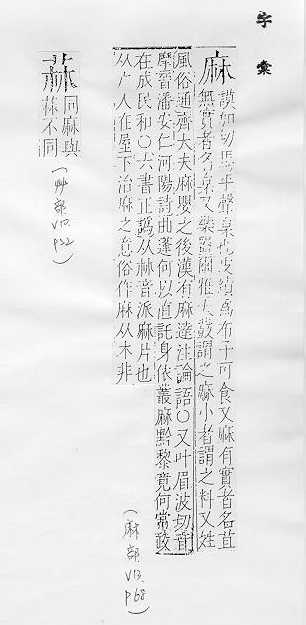 字彙
麻
謨加切馬平聲枲也皮績爲布子可食又麻有實者名苴
無實者名枲又樂器爾雅大鼗謂之麻小者謂之料又姓
風俗通齊大夫麻嬰之後漢有麻達注論語〇又叶眉波切音
摩晉潘安仁河陽詩曲蓬何以直託身依叢麻黔黎竟何常政
在成民和〇六書正譌从𣏟音派麻片也
从广人在屋下治麻之意俗作麻从木非
(麻部 V13. P68)
蔴
同麻與
菻不同
(艸部 V10. P32)